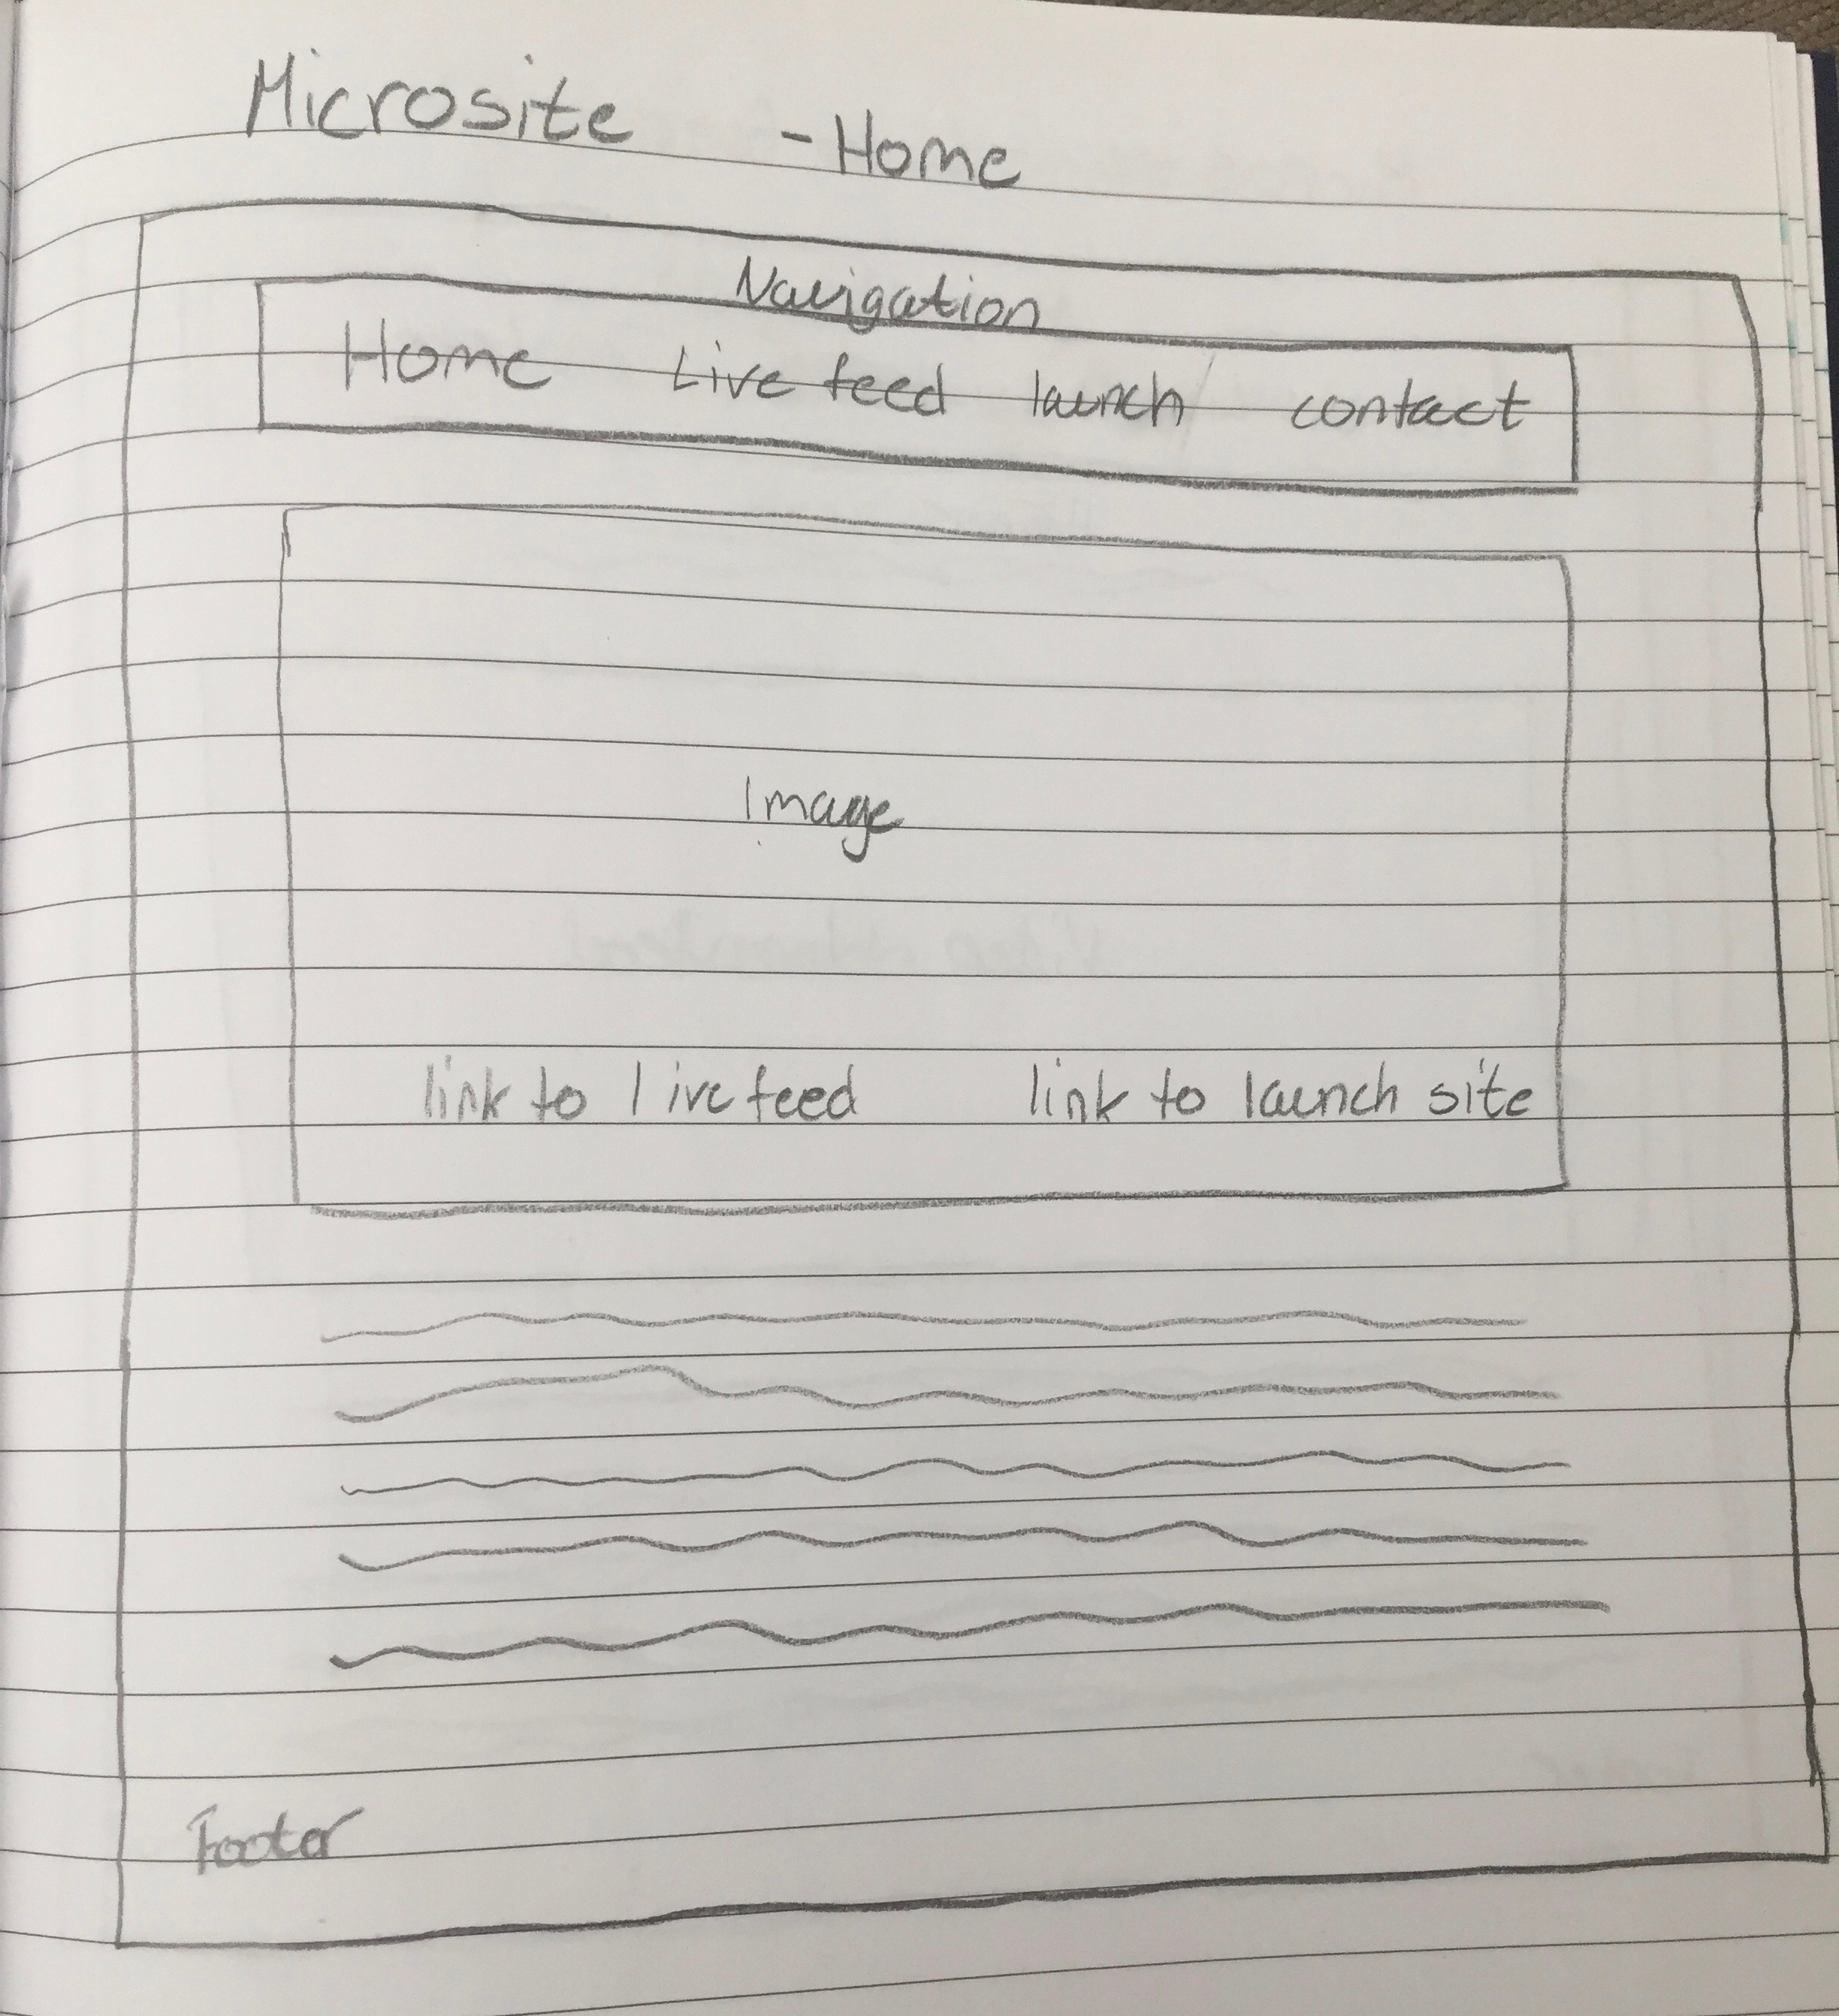 Microsite - Home
Navigation
Home Live feed launch contact
Image
link to live feed link to launch site
Footer